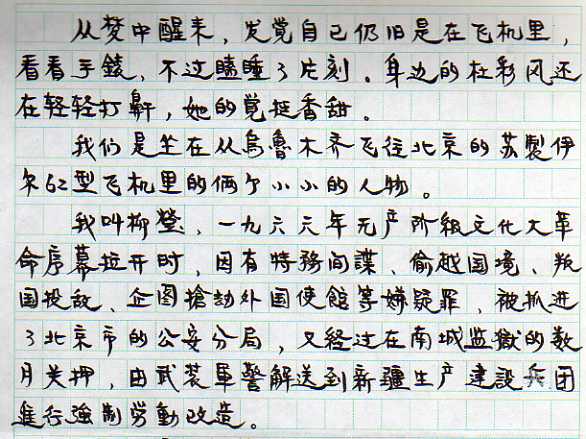 从梦中醒来，发觉自己仍旧是在飞机里，
看看手錶，不过瞌睡了片刻。身边的杜彩凤还
在轻轻打鼾，她的觉挺香甜。
我们是坐在从烏魯木齐飞往北京的苏製伊
尔62型飞机里的俩个小小的人物。
我叫柳瑩，一九六六年无产阶級文化大革
命序幕拉开时，因有特務间諜、偷越国境、叛
国投敌、企图搶劫外国使館等嫌疑罪，被抓进
了北京市的公安分局，又经过在南城监獄的数
月关押，由武装軍警解送到新疆生产建設兵团
進行強制劳動改造。